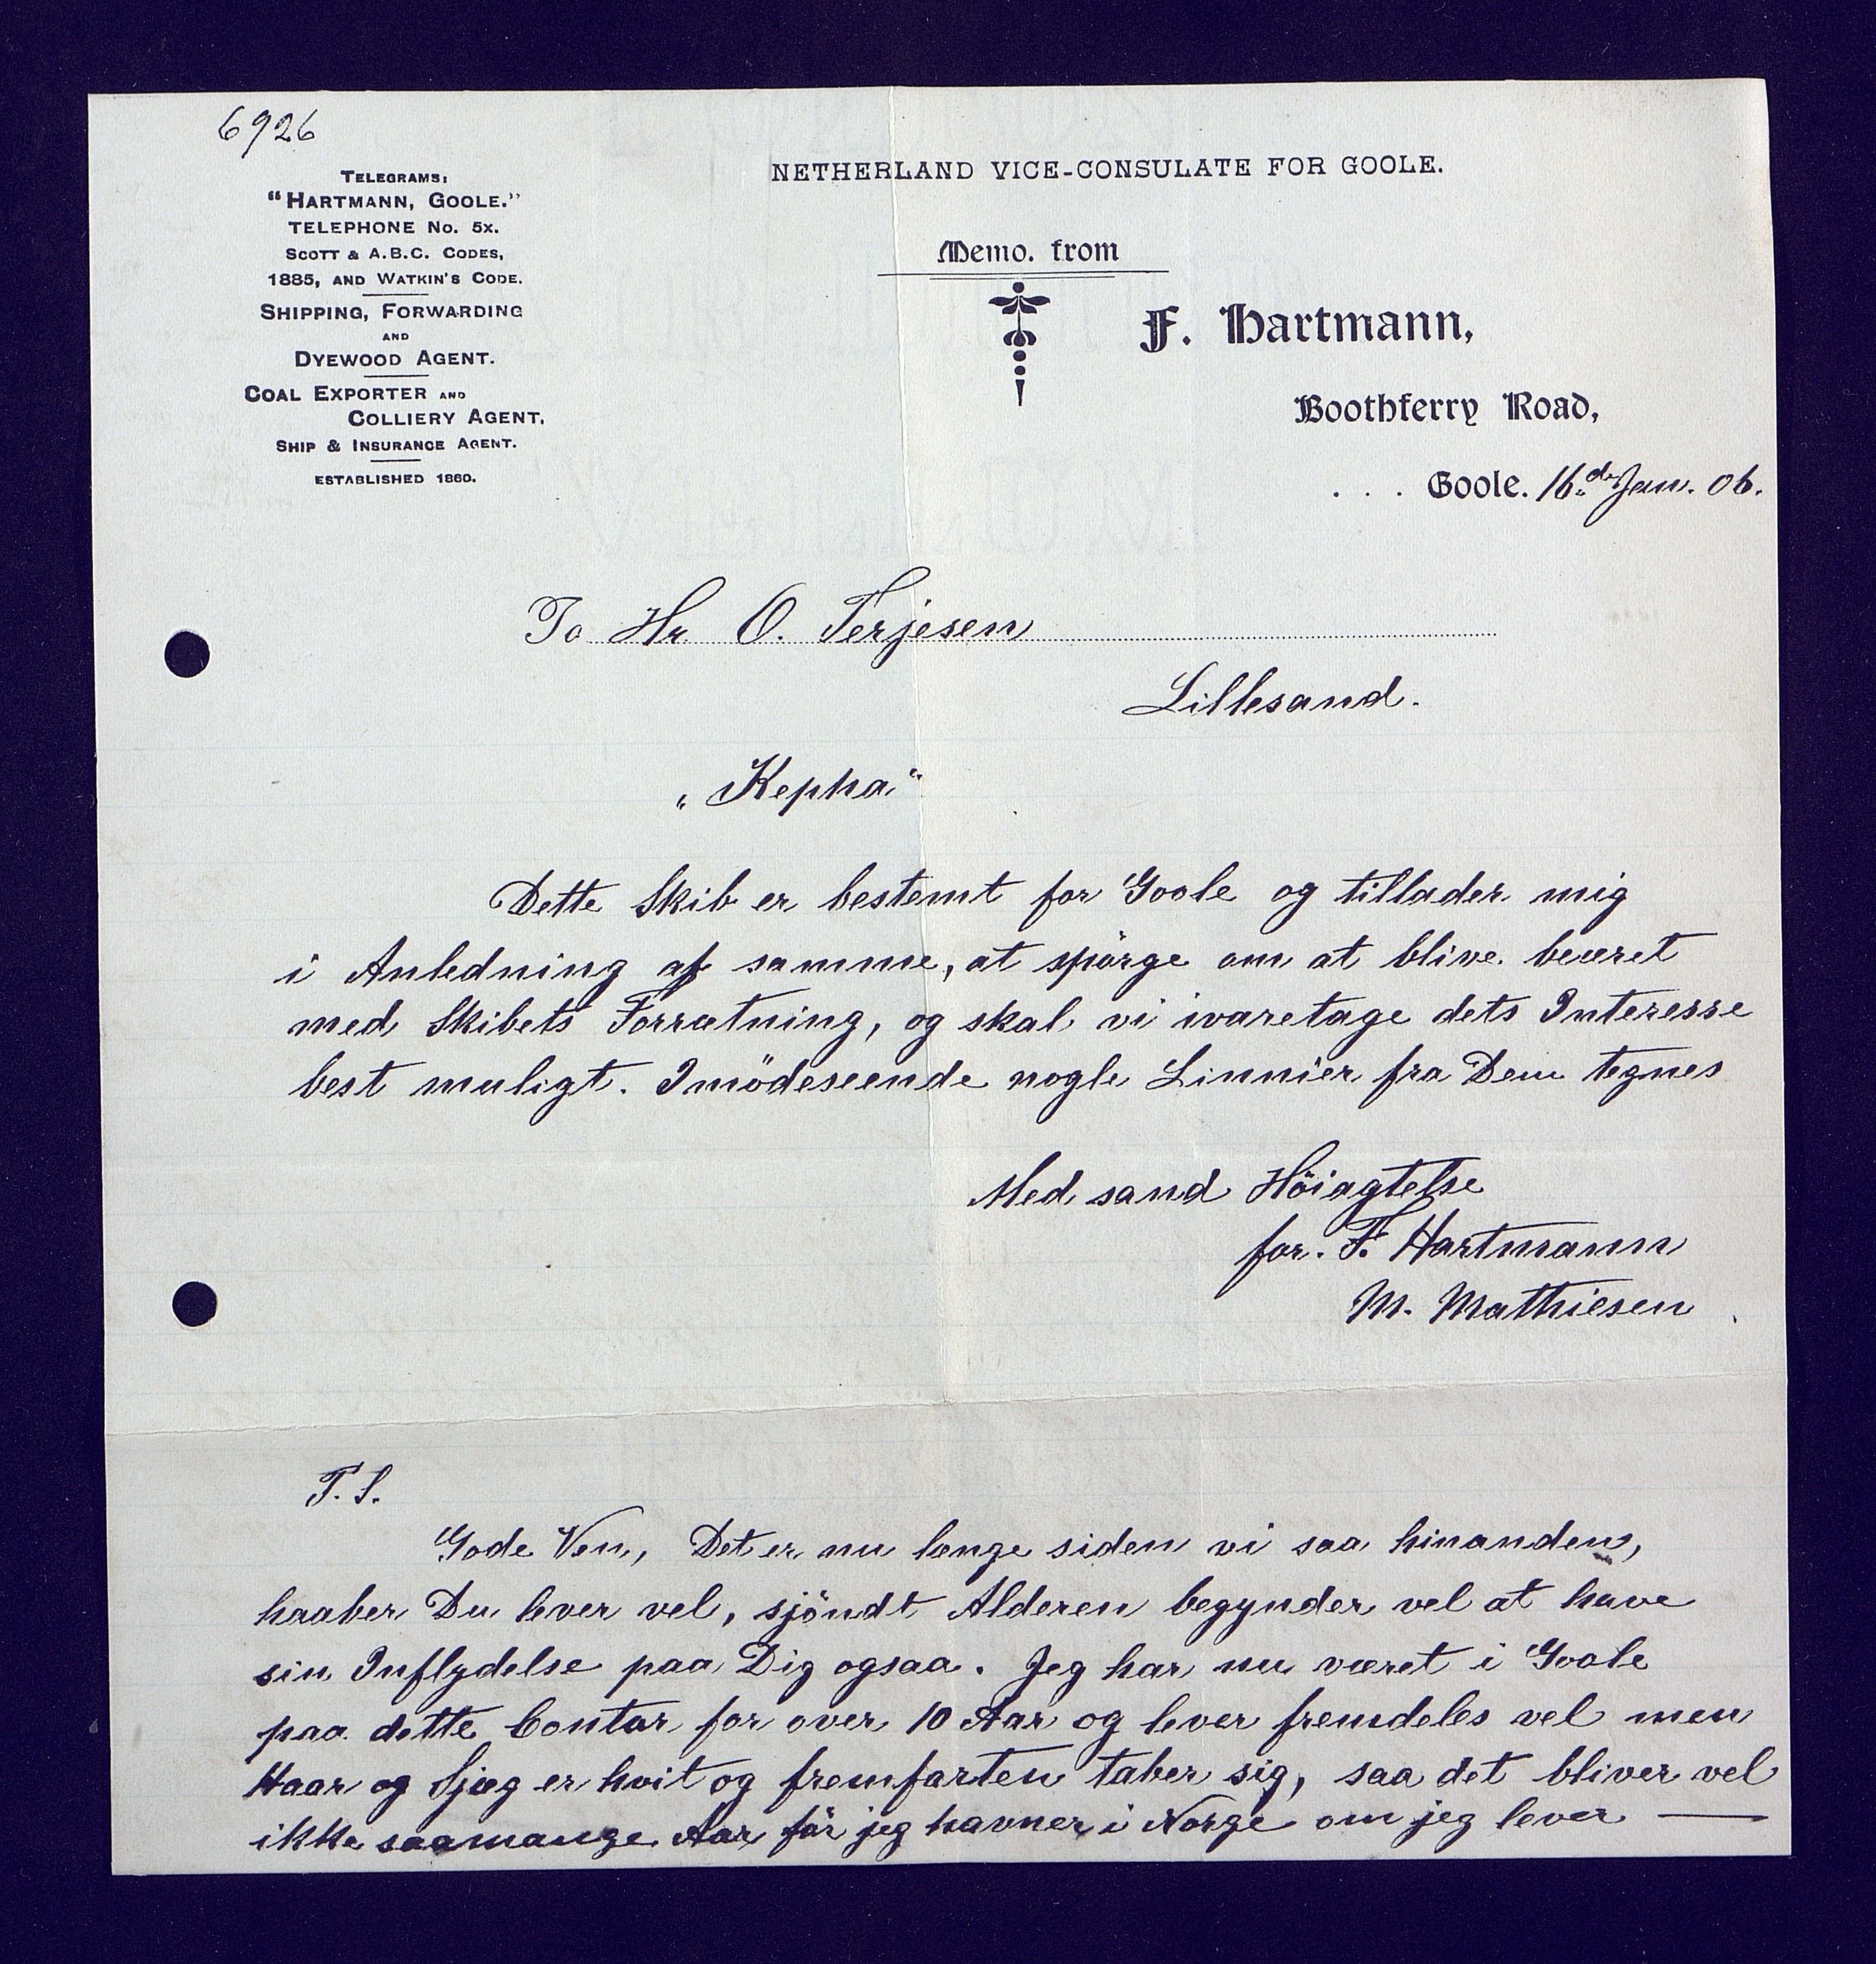 6926
TELEGRAMS:
"HARTMANN, GOOLE."
TELEPHONE No. 5x.
SCOTT & A.B.C. CODES,
1885, AND WATKIN'S CODE.
SHIPPING, FORWARDING
AND
DYEWOOD AGENT.
COAL EXPORTER AND
COLLIERY AGENT,
SHIP & INSURANCE AGENT.
ESTABLISHED 1860.
NETHERLAND VICE-CONSULATE FOR GOOLE.
Memo. from
F. Hartmann,
Boothferry Road,
. . . Goole. 16.de Jan. 06.
To Hr O. Terjesen
Lillesand.
„Kepha"
Dette Skib er bestemt for Goole og tillader mig
i Anledning af samme, at spörge om at blive beæret
med Skibets Forrætning, og skal vi ivaretage dets Interesse
best muligt. Imödeseende nogle Linnier fra Dem tegnes
Med sand Höiagtelse
for. F. Hartmann
M. Mathiesen
T. S.
Gode Ven, Det er nu længe siden vi saa hinanden,
haaber Du lever vel, sjöndt Alderen begynder vel at have
sin Inflydelse paa Dig ogsaa. Jeg har nu været i Goole
paa dette Contor for over 10 Aar og lever fremdeles vel men
Haar og Sjæg er hvit og fremfarten taber sig, saa det bliver vel
ikke saamange Aar för jeg havner i Norge om jeg lever —